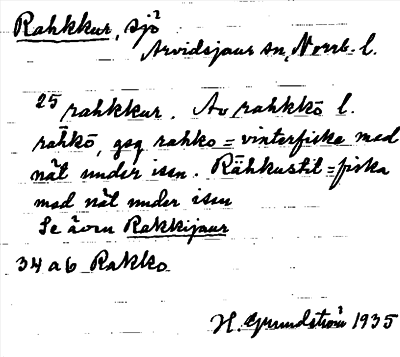 Rahkkur, sjö
Arvidsjaur sn, Norrb. l.
25 rahkkur. Av rahkkō l.
råhkō, rahko = vinterfiske med
nät under isen. Råhkustit = fiska
med nät under isen
Se även Rakkijaur
34 a 6 Rakko
H. Grundström 1935